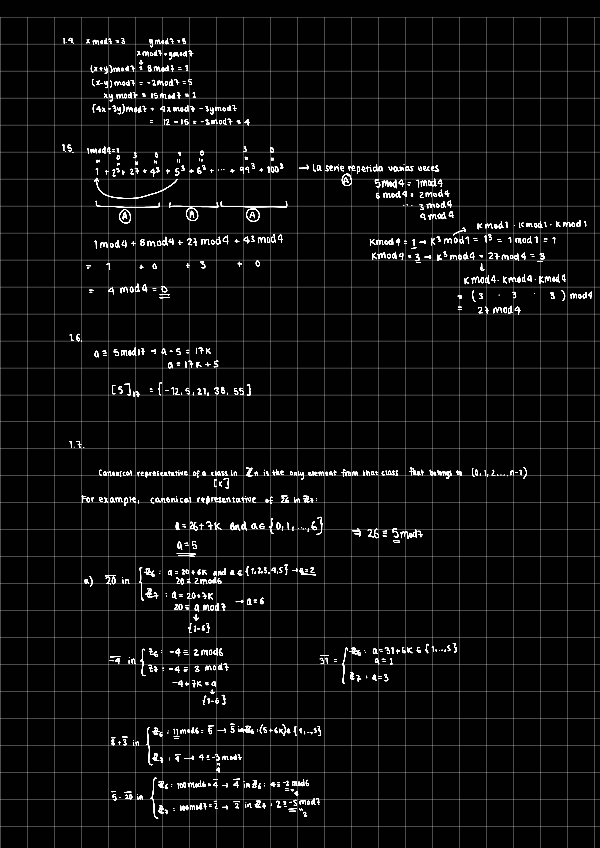 1.4. x mod 7 = 3 y mod 7 = 5
x mod 7 + y mod 7
(x+y) mod 7 = 8 mod 7 = 1
(x-y) mod 7 = -2 mod 7 = 5
xy mod 7 = 15 mod 7 = 1
(4x - 3y) mod 7 = 4x mod 7 - 3y mod 7
= 12 - 15 = -3 mod 7 = 4
1.5. 1 mod 4 = 1 0 3 0 1 0 3 0
1 + 2³ + 27 + 4³ + 5³ + 6³ + ... + 99³ + 100³ → La serie repetida varias veces
A A A
A 5 mod 4 = 1 mod 4
6 mod 4 = 2 mod 4
... 3 mod 4
4 mod 4
1 mod 4 + 8 mod 4 + 27 mod 4 + 43 mod 4
= 1 + 0 + 3 + 0
= 4 mod 4 = 0
K mod 1 · K mod 1 · K mod 1
K mod 4 = 1 → K³ mod 1 = 1³ = 1 mod 1 = 1
K mod 4 = 3 → K³ mod 4 = 27 mod 4 = 3
K mod 4 · K mod 4 · K mod 4
= ( 3 · 3 · 3 ) mod 4
= 27 mod 4
1.6.
a ≡ 5 mod 17 → a - 5 = 17K
a = 17K + 5
[5]₁₇ = {-12, 5, 21, 38, 55}
1.7.
Canonical representative of a class in ℤn is the only element from that class that belongs to {0, 1, 2, ... n-1}
[K]
For example, canonical representative of 26 in ℤ₇:
a = 26 + 7K and a ∈ {0, 1, ..., 6} ⇒ 26 ≡ 5 mod 7
a = 5
a) 20 in ℤ₆: a = 20 + 6K and a ∈ {1,2,3,4,5} → a = 2
20 ≡ 2 mod 6
ℤ₇: a = 20 + 7K
20 ≡ a mod 7 → a = 6
{1-6}
-4 in ℤ₆: -4 ≡ 2 mod 6
ℤ₇: -4 ≡ 3 mod 7
-4 + 7K = a
{1-6}
31 = ℤ₆: a = 31 + 6K ∈ {1, .., 5}
a = 1
ℤ₇: a = 3
8 + 3 in ℤ₆: 11 mod 6 = 5 → 5 in ℤ₆: (5 + 6K) ∈ {1, .., 5}
ℤ₇: 4 → 4 ≡ -3 mod 7
4
5 · 20 in ℤ₆: 100 mod 6 = 4 → 4 in ℤ₆: 4 ≡ -2 mod 6
4
ℤ₇ = 100 mod 7 = 2 → 2 in ℤ₇: 2 ≡ -5 mod 7
2